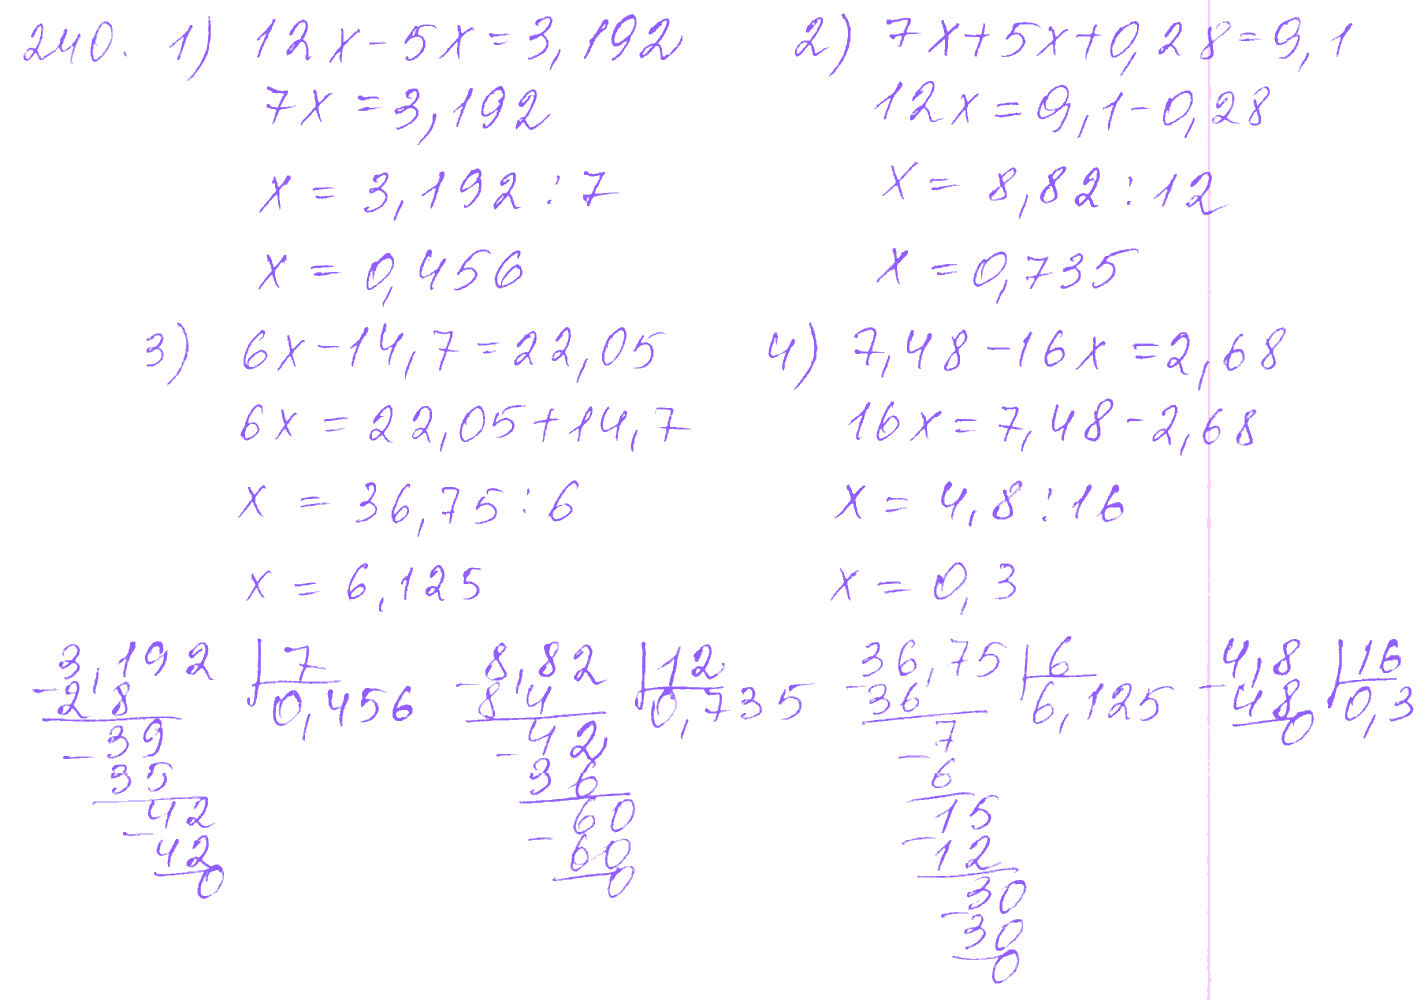 240. 1) 12x-5x=3,192
7x=3,192
x=3,192:7
x=0,456
2) 7x+5x+0,28=9,1
12x=9,1-0,28
x=8,82:12
x=0,735
3) 6x-14,7=22,05
6x=22,05+14,7
x=36,75:6
x=6,125
4) 7,48-16x=2,68
16x=7,48-2,68
x=4,8:16
x=0,3
3,192 | 7
-28 | 0,456
-39
35
-42
42
0
8,82 | 12
-84 | 0,735
-42
36
-60
60
0
36,75 | 6
-36 | 6,125
-7
6
-15
12
-30
30
0
4,8 | 16
-48 | 0,3
0